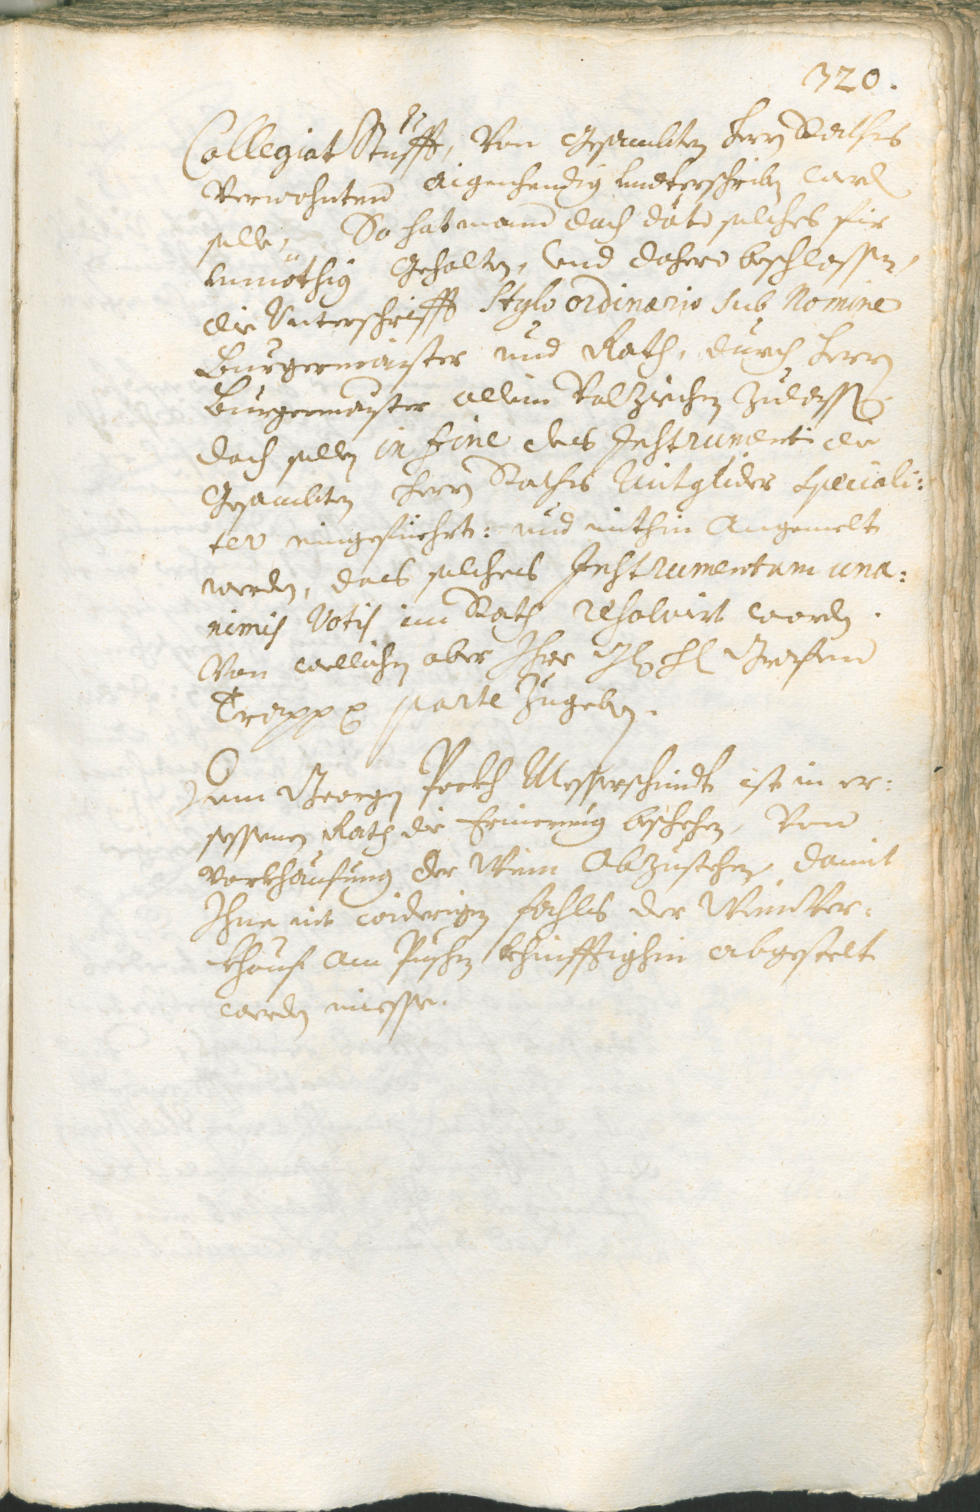 320.
Collegiat Stüfft, Von Gesambten Herrn Rathes
Verwohnten aigenhendig underschriben werd
solle, So hat mann doch dato solches fir
unnöthig Gehalten, und dahero beschlossen,
die Unterschrifft Stylo ordinario sub Nomine
Burgermaister und Rath, durch Herrn
Burgermaister allein Volziechen Zulassen
doch sollen in fine des Instrumenti die
Gesambten Herrn Rathes Mitglider speciali:
ter eingefüehrt: und mithin Angemelt
werden, das solches Instrumentum una:
nimis Votis im Rath resolvirt worden.
Von wellichen aber Ihro Grafen
Trapp parte Zugeben.
Dem Georgen Pockh Messerschmidt ist in er:
sessenen Rath die Erinerung beschehen, Von
Verkhaufung der Wein Abzustehen, damit
Ihme nit widerigen fahls der Wein Ver:
khauf am Puschen khinfftighin abgestelt
werden miesse.